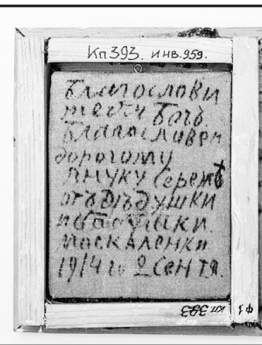 Кп393. инв.959.
Благослови
тебя Богъ
Благословен
дорогому
внуку Сережѣ
отъ Дѣдушки
и бабушки
Москаленки
1914 го 2 Сентя.
кп 393
ф1